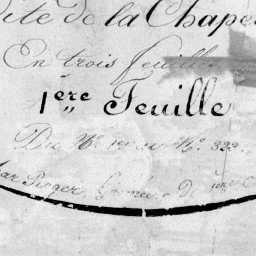 dite de la Chape
En trois feuilles
1ère Feuille
Du N° 1er au N° 323
par Roger Géomètre